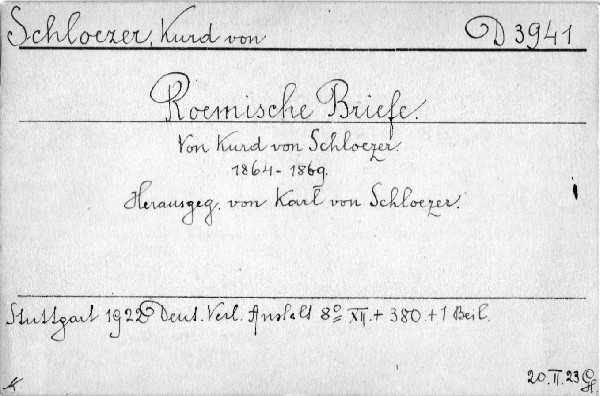 Schloezer, Kurd von D 3941
Roemische Briefe.
Von Kurd von Schloezer.
1864-1869.
Herausgeg. von Karl von Schloezer.
Stuttgart 1922 Deut. Verl. Anstalt 8° XII. + 380. + 1 Beil.
20.II.23